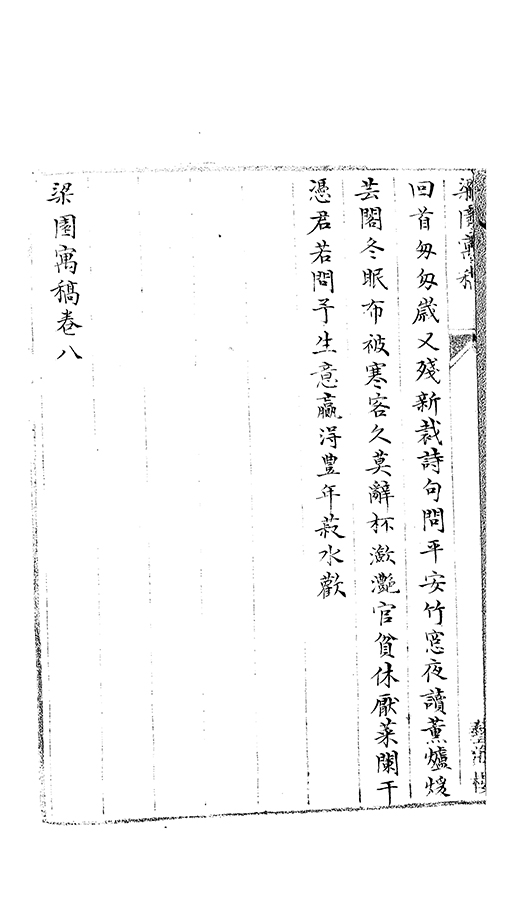 梁園寓稿
回首匆匆歲又殘新裁詩句問平安竹窓夜讀薰爐煖
芸閣冬眠布被寒客久莫辭杯瀲灩官貧休厭菜闌干
憑君若問予生意贏淂豐年菽水歡
梁園寓稿卷八